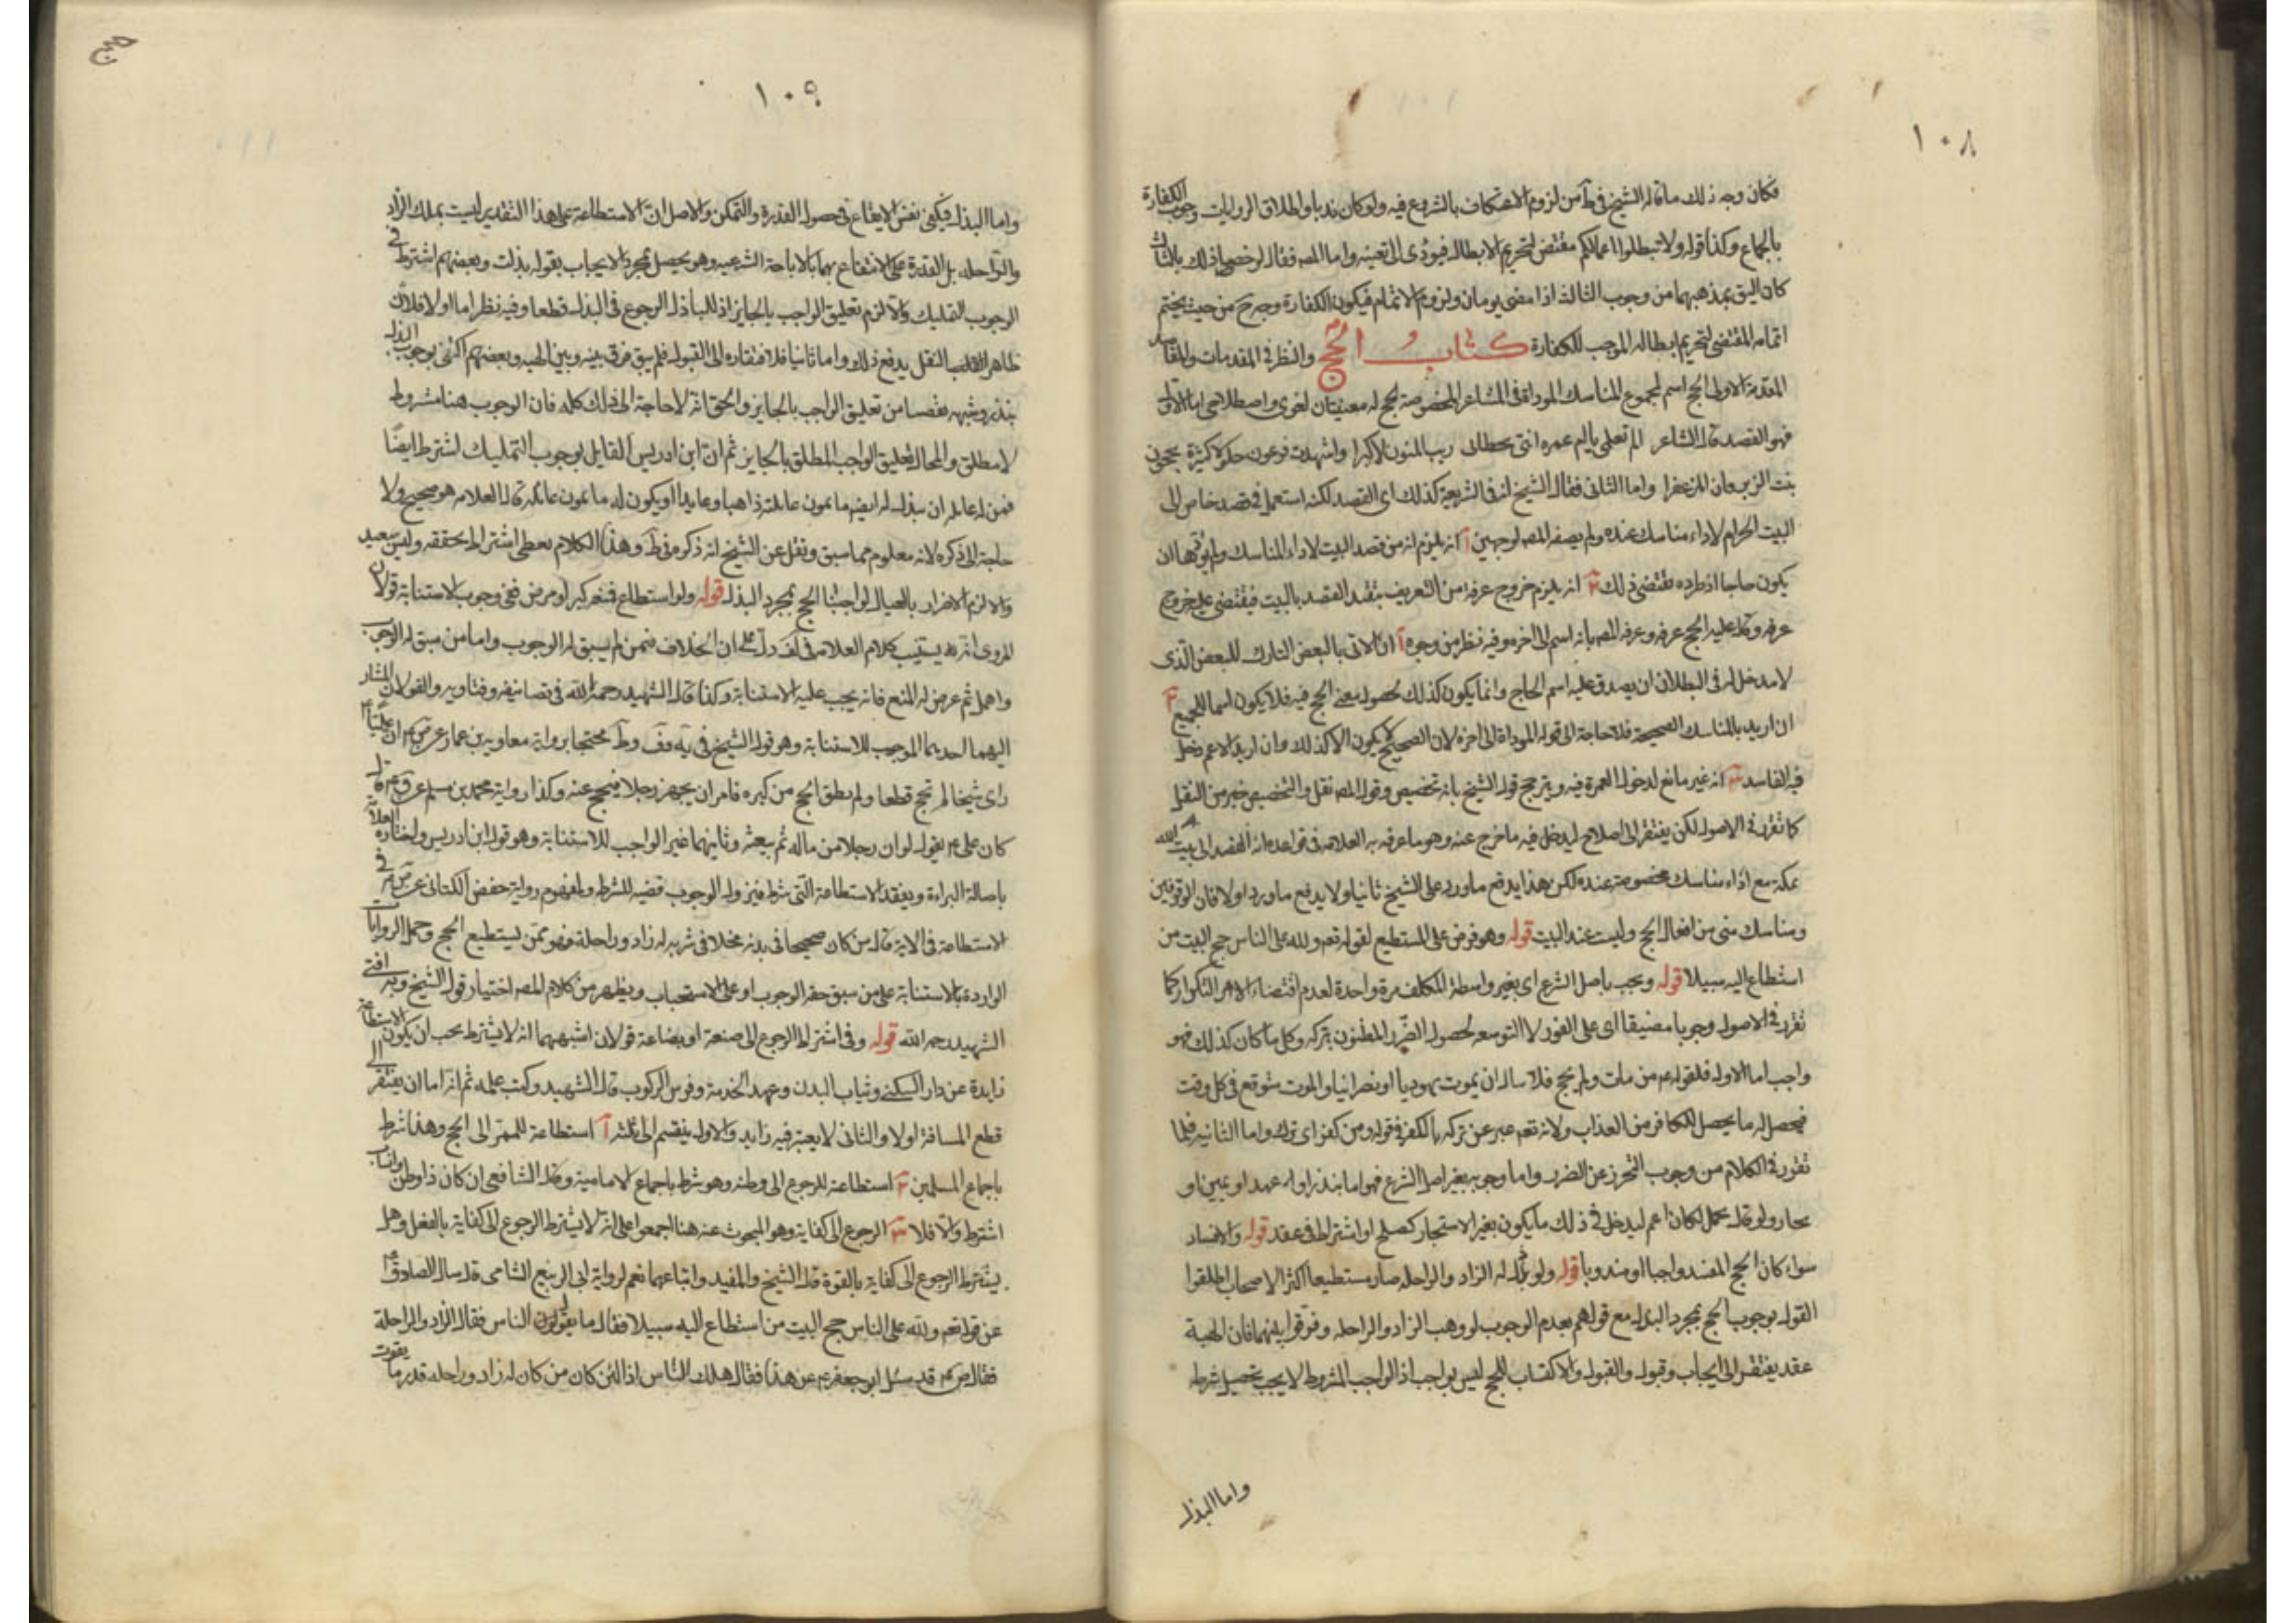 ١٠٨
فكان وجه ذلك ما قاله الشيخ في ط من لزوم الاعتكاف بالشروع فيه ولو كان ندبا ولطلاق الروايات وجوب الكفارة
بالجماع وكذا قوله ولا تبطلوا اعمالكم مقتض لتحريم الابطال فيؤدى الى تعينه واما المصـ فقال لو خصصنا ذلك بالثالث
كان اليق بمذهبهما من وجوب الثالث اذا مضى يومان ولزوم الاتمام فيكون الكفارة وجه ح من حيث يختم
اتمامه المقتضى لتحريم ابطاله الموجب للكفارة كتاب الحج والنظر في المقدمات والمقاصد
المقدمة الاولى الحج اسم لمجموع المناسك المودّاة في المشاعر المخصوصة للحج له معنيان لغوى واصطلاحى اما الاول
فهو القصد قال الشاعر الم تعلمى يا ام عمره اننى تخطانى ريب المنون لاكبرا واشهد من عون حلولا كثيرة يحجون
الزبرقان المزعفرا واما الثانى فقال الشيخ انه في الشريعة كذلك اى القصد لكنه استعمل في قصد خاص الى
البيت الحرام لاداء مناسك عنده ولم يصفه المصـ لوجهين آ انه يلزم انه من قصد البيت لاداء المناسك ولم يؤتها ان
يكون حاجا اذ طرده يقتضى ذلك ٢ انه يلزم خروج عرفة من التعريف بتقيد القصد بالبيت فيقتضى خروج
عرفة وقال عليه الحج عرفة وعرفه المصـ بانه اسم الى اخره وفيه نظر من وجوه آ ان الاتى بالبعض التارك للبعض الذى
لا مدخل له في البطلان ان يصدق عليه اسم الحاج وانما يكون كذلك لحصول معنى الحج فيه فلا يكون اسما للجميع ٢
ان اريد بالمناسك الصحيحة فلا حاجة الى قوله المودّاة الى اخره لان الصحيح لا يكون الا كذلك وان اريد الاعم دخل
فيه الفاسد ٣ انه غير مانع لدخول العمرة فيه ويترجح قول الشيخ بانه تخصيص وقول المصـ نقل والتخصيص خير من النقل
كما تقرر في الاصول لكن يفتقر الى اصلاح ليدخل فيه ما خرج عنه وهو ما عرفه به العلامة في قواعده انه القصد الى بيت الله
بمكة مع اداء مناسك مخصوصة عنده لكن هذا يدفع ما ورد على الشيخ ثانيا ولا يدفع ما ورد اولا فان الوقوفين
ومناسك منى من افعال الحج وليست عند البيت قوله وهو فرض على المستطيع لقوله تعـ ولله على الناس حج البيت من
استطاع اليه سبيلا قوله ويجب باصل الشرع اى بغير واسطة المكلف مرة واحدة لعدم اقتضاء الامر التكرار كما
تقرر في الاصول وجوبا مضيقا اى على الفور لا التوسعه لحصول الضرر المظنون بتركه وكل ما كان كذلك فهو
واجب اما الاولى فلقوله عم من مات ولم يحج فلا ساله ان يموت يهوديا او نصرانيا والموت متوقع في كل وقت
فيحصل له ما يحصل للكافر من العذاب ولانه تعـ عبر عن تركه بالكفر في قوله ومن كفر اى ترك واما الثانيه فلما
تقرر في الكلام من وجوب التحرز عن الضرر واما وجوبه بغير اصل الشرع فهو اما بنذر او عهد او يمين او
ولو قال تحمل لكان اعم ليدخل في ذلك ما يكون بغير الاستيجار كصلح او اشتراط في عقد قوله والافساد
سواء كان الحج المفسد واجبا او مندوبا قوله ولو بذل له الزاد والراحله صار مستطيعا اكثر الاصحاب اطلقوا
القول بوجوب الحج بمجرد البذل مع قولهم بعدم الوجوب لو وهب الزاد والراحله وفرقوا بينهما فان الهبة
عقد يفتقر الى ايجاب وقبول والقبول والاكتساب للحج ليس بواجب اذ الواجب المشروط لا يجب تحصيل شرطه
واما البذل
١٠٩
واما البذل فيكفى نفس الايقاع في حصول القدرة والتمكن والاصل ان الاستطاعة على هذا التقدير ليست بملك الزاد
والراحله بل القدرة على الانتفاع بهما بالاباحة الشرعيه وهو يحصل بمجرد الايجاب بقوله بذلت وبعضهم اشترط في
الوجوب التمليك والا لزم تعليق الواجب بالجايز اذ للباذل الرجوع في البذل قطعا وفيه نظر اما اولا فلان
ظاهر النقل يدفع ذلك واما ثانيا فلافتقاره الى القبول فلم يبق فرق بينه وبين الهبه وبعضهم اكتفى بوجوب البذل
بنذر وشبهه تفصيا من تعليق الواجب بالجايز والحق انه لا حاجة الى ذلك كله فان الوجوب هنا مشروط
لا مطلق والمحال تعليق الواجب المطلق بالجايز ثم ان ابن ادريس القايل بوجوب التمليك اشترط ايضا
فمن له عايله ان يبذل له ايضا ما يمون عايلته ذاهبا وعايدا او يكون له ما يمون عايلته قال العلامه هو صحيح ولا
حاجة الى ذكره لانه معلوم مما سبق ونقل عن الشيخ انه ذكره في ط وهذا الكلام يعطى اشتراط تحققه وليس ببعيد
والا لزم الاضرار بالعيال لو اوجبنا الحج بمجرد البذل قوله ولو استطاع فمنعه كبر او مرض ففي وجوب الاستنابة قولان
المروى انه يستنيب كلام العلامه في لف دل على ان الخلاف فيمن لم يسبق له الوجوب واما من سبق له الوجوب
واهمل ثم عرض له المنع فانه يجب عليه الاستنابة وكذا قال الشهيد رحمه الله في تصانيفه وفتاويه والقولان المشار
اليهما احدهما الموجب للاستنابة وهو قول الشيخ في يه وف وط محتجا برواية معاويه بن عمار عن ص عم ان عليا عم
راى شيخا لم يحج قطعا ولم يطق الحج من كبره فامر ان يجهز رجلا فيحج عنه وكذا رواية محمد بن مسلم عن ق عم قال
كان على عم يقول لو ان رجلا من ماله ثم يبعثه وثانيهما غير الواجب للاستنابة وهو قول ابن ادريس واختاره العلامة
باصالة البراءة وبفقد الاستطاعة التى شرط فيزول الوجوب قضية للشرط ولمفهوم رواية حفص الكناني عن ص عم في
الاستطاعة في الاية قال من كان صحيحا في بدنه مخلا في سربه له زاد وراحلة فهو ممن يستطيع الحج وحمل الروايات
الواردة بالاستنابة على من سبق حقه الوجوب او على الاستحباب ويظهر من كلام المصـ اختيار قول الشيخ وبه افتى
الشهيد رحمه الله قوله وفي اشتراط الرجوع الى صنعة او بضاعة قولان اشبههما انه لا يشترط يجب ان يكون الاستطاعة
زايدة عن دار السكنى وثياب البدن وعبد الخدمة وفرس الركوب قال الشهيد وكتب علمه ثم انه اما ان يفتقر الى
قطع المسافة اولا والثانى لا يعتبر فيه زايد والاول ينقسم الى ثلثه آ استطاعة للممر الى الحج وهذا شرط
باجماع المسلمين ٢ استطاعة للرجوع الى وطنه وهو شرط باجماع الامامية وقال الشافعى ان كان ذا وطن وانساب
اشترط والا فلا ٣ الرجوع الى كفاية وهو المبحوث عنه هنا اجمعوا على انه لا يشترط الرجوع الى كفاية بالفعل وهل
يشترط الرجوع الى كفاية بالقوة قال الشيخ والمفيد واتباعهما نعم لرواية ابى الربيع الشامى قال سال الصادق عم
عن قوله تعـ ولله على الناس حج البيت من استطاع اليه سبيلا فقال ما يقول الناس فقال الزاد والراحلة
فقال ص عم قد سئل ابو جعفر عم عن هذا فقال هلك الناس اذا لئن كان من كان له زاد وراحله قدر ما يقوت